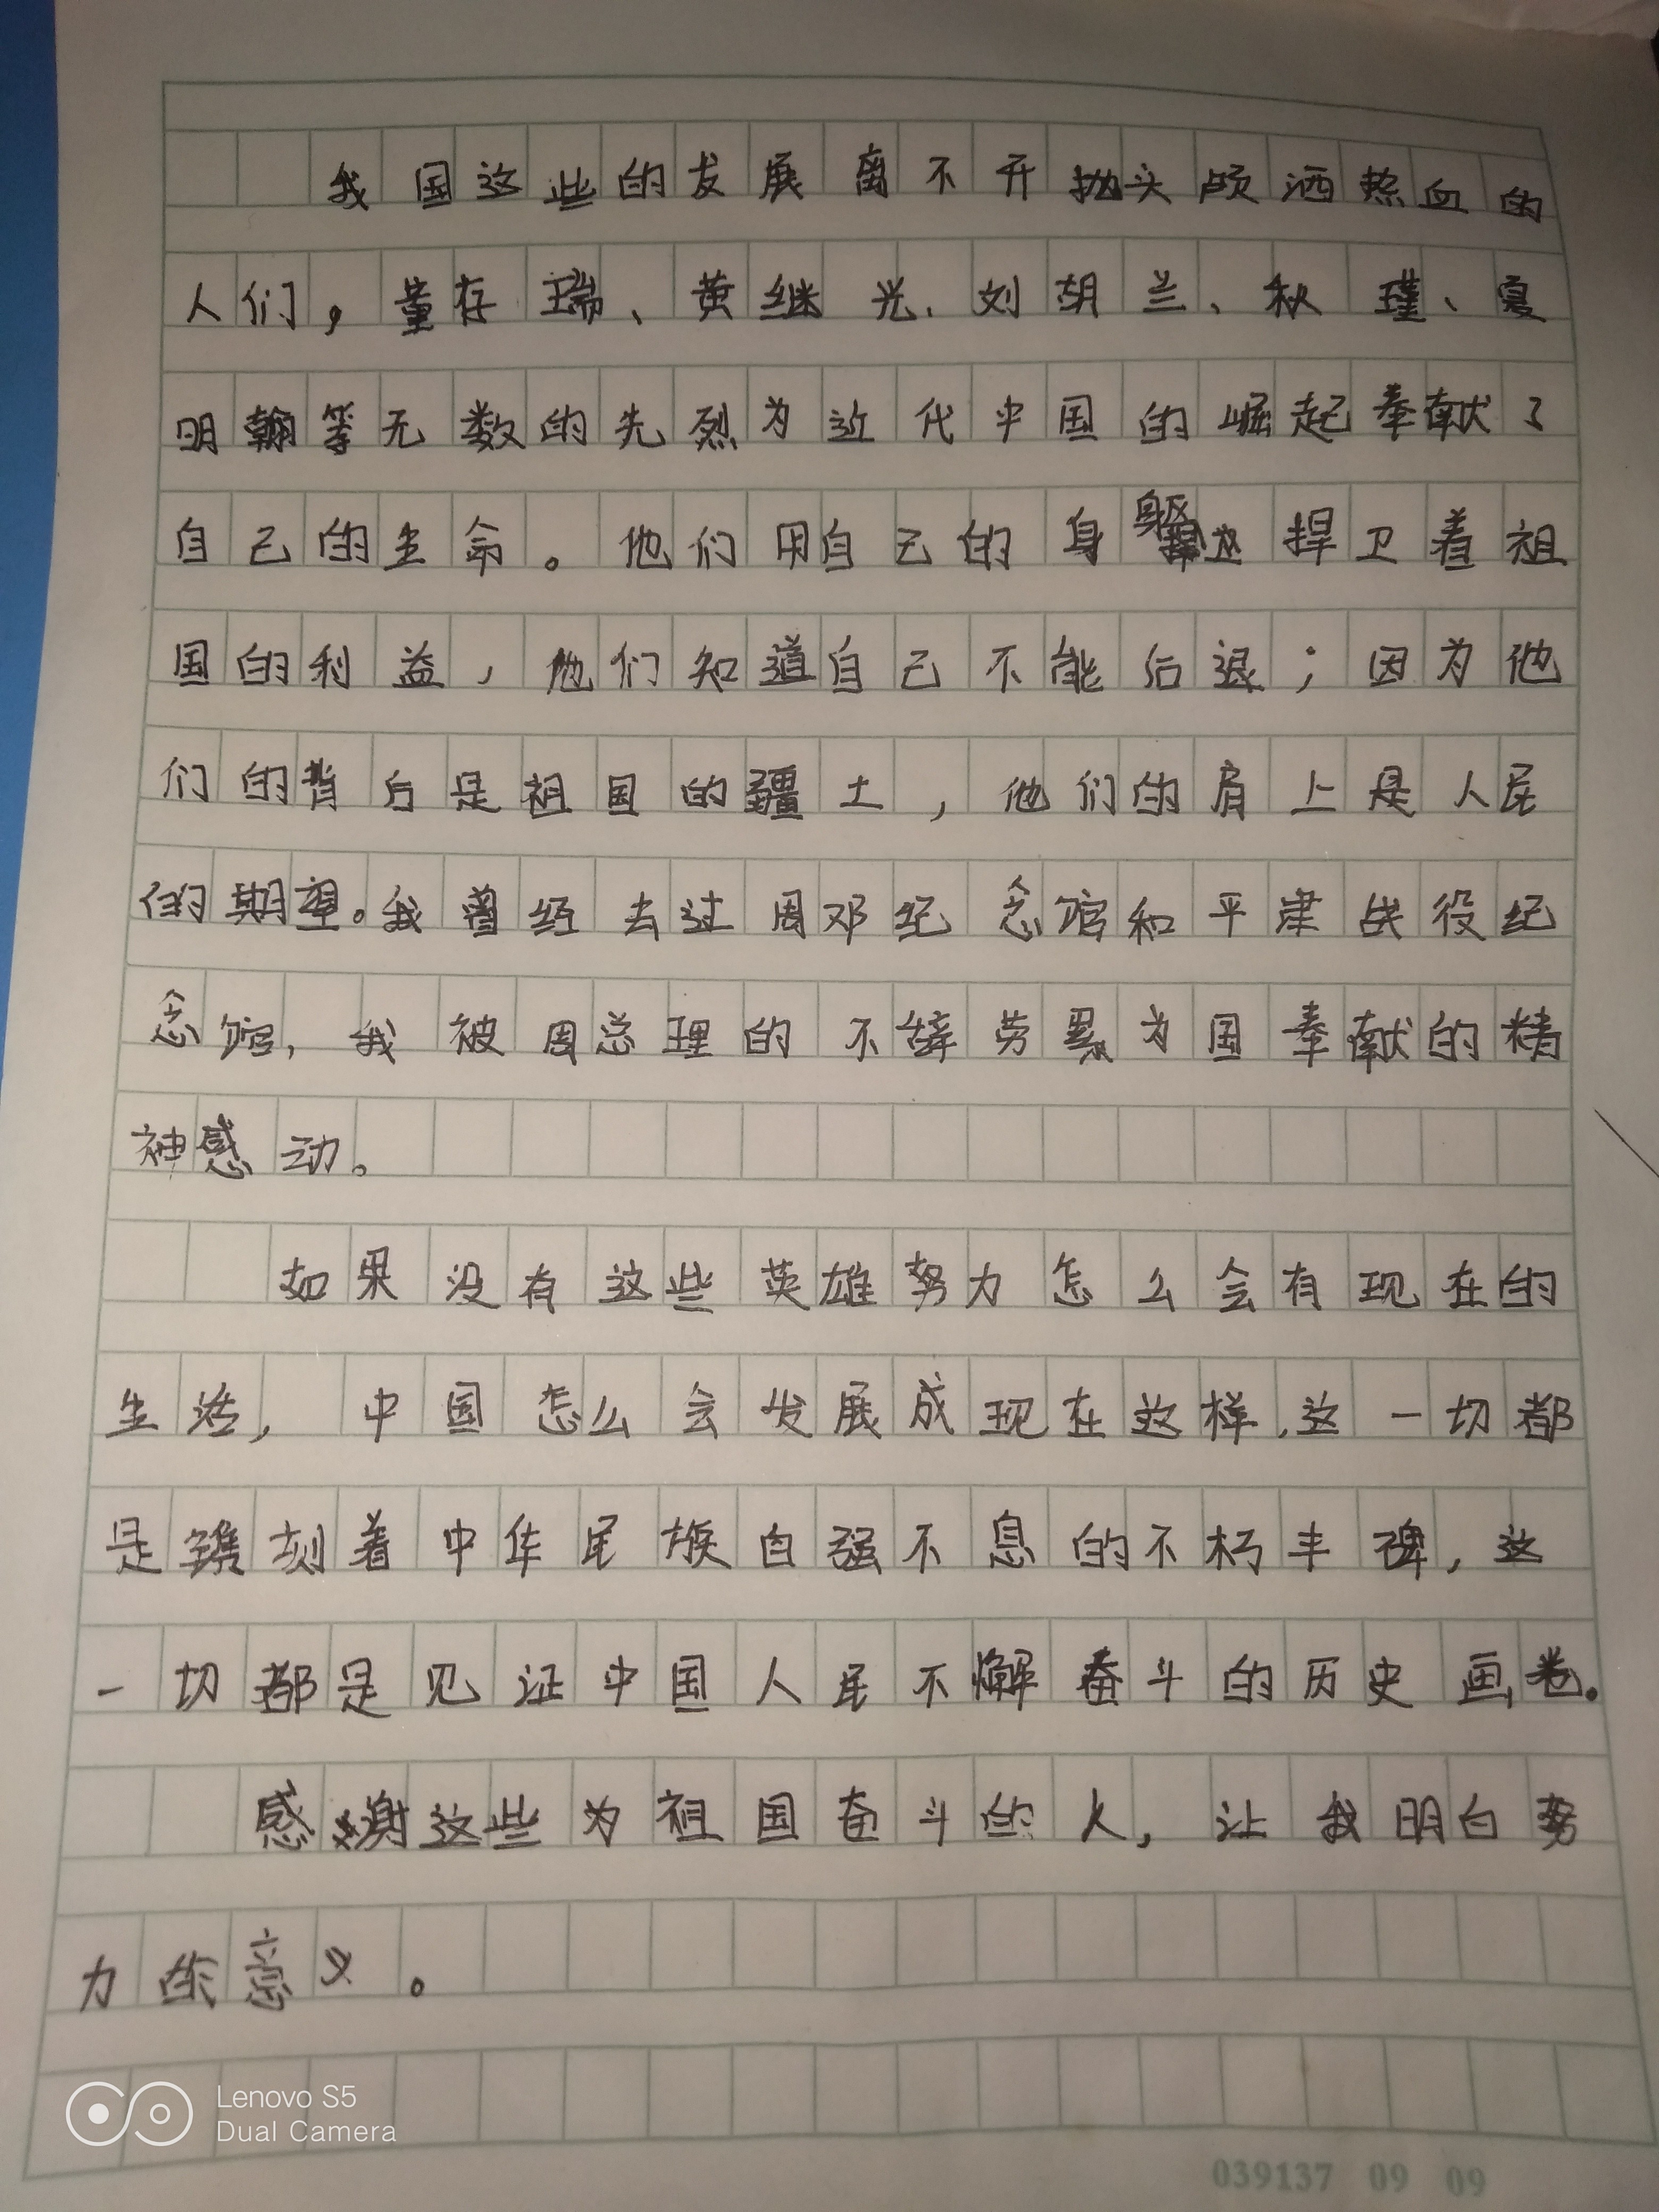 我国这些的发展离不开抛头颅洒热血的
人们，董存瑞、黄继光、刘胡兰、秋瑾、夏
明翰等无数的先烈为近代中国的崛起奉献了
自己的生命。他们用自己的身躯捍卫着祖
国的利益，他们知道自己不能后退；因为他
们的背后是祖国的疆土，他们的肩上是人民
们的期望。我曾经去过周邓纪念馆和平津战役纪
念馆，我被周总理的不辞劳累为国奉献的精
神感动。
如果没有这些英雄努力怎么会有现在的
生活，中国怎么会发展成现在这样，这一切都
是镌刻着中华民族自强不息的不朽丰碑，这
一切都是见证中国人民不懈奋斗的历史画卷。
感谢这些为祖国奋斗的人，让我明白努
力的意义。
Lenovo S5
Dual Camera
039137 09 09